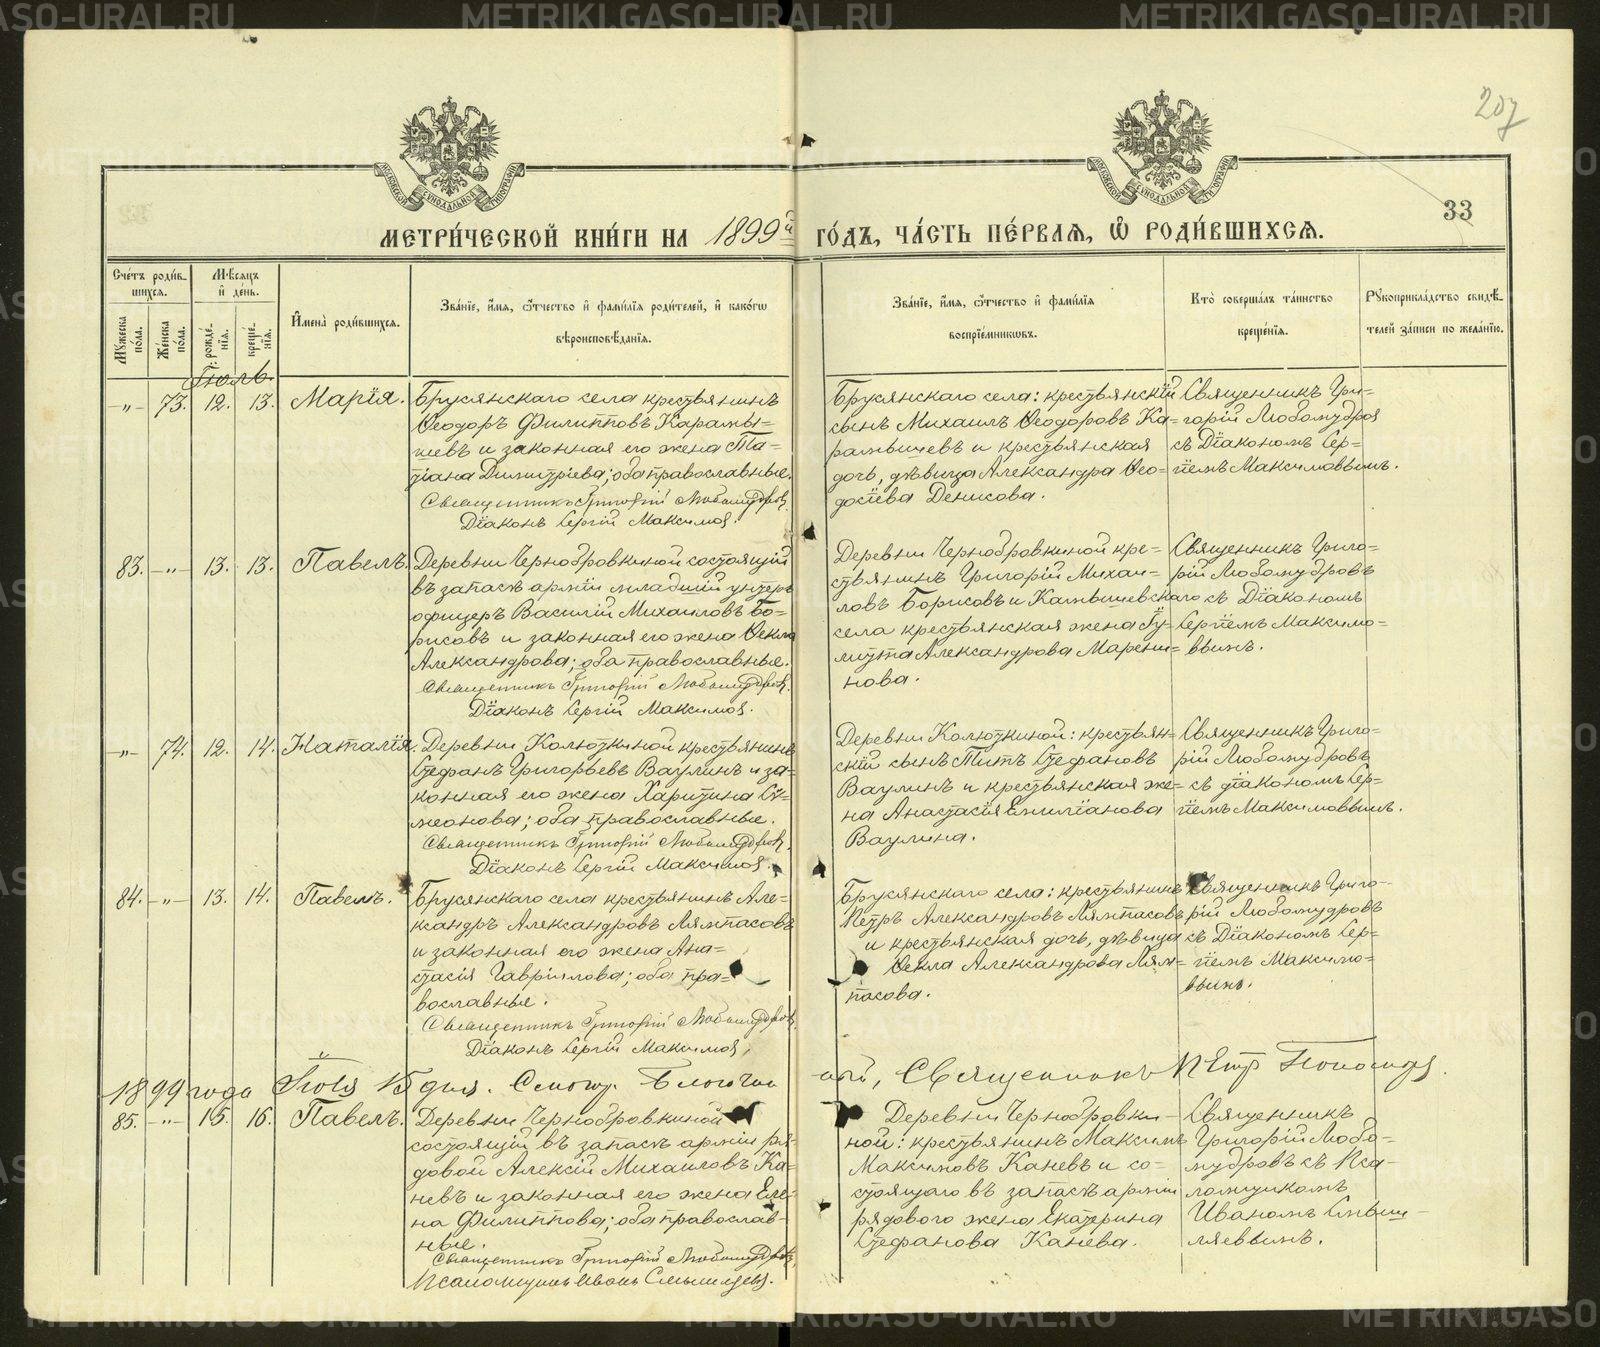 207
33
МОСКОВСКОЙ СѴНОДАЛЬНОЙ ТИПОГРАФІИ
МОСКОВСКОЙ СѴНОДАЛЬНОЙ ТИПОГРАФІИ
МЕТРИ́ЧЕСКОЙ КНИ́ГИ НА 1899й ГО́ДЪ, ЧА́СТЬ ПЕ́РВАЯ, Ѡ РОДИ́ВШИХСЯ.
Сче́тъ роди́вшихся.
Мꙋжеска по́ла.
Же́нска по́ла.
Мѣ́сяцъ и́ де́нь.
рожде́нїя.
креще́нїя.
И҆мена̀ роди́вшихся.
Зва́нїе, и҆́мя, ѻ҆́тчество и҆ фамѝлїя роди́телей, и҆ како́гѡ
вѣроисповѣ́данїя.
Зва́нїе, и҆́мя, ѻ҆́тчество и҆ фами́лїя
воспрїе́мникѡвъ.
Кто̀ соверша́лъ та́инство
креще́нїя.
Рꙋкоприкла́дство свидѣ́телей за́писи по жела́нїю.
Іюль.
-„- 73. 12. 13. Марія.
Брусянскаго села крестьянинъ
Ѳеодоръ Филипповъ Карамы-
шевъ и законная его жена Та-
тіана Димитріева; оба православные.
Священникъ Григорій Любомудровъ.
Діаконъ Сергій Максимов.
Брусянскаго села: крестьянскій
сынъ Михаилъ Ѳеодоровъ Ка-
рамышевъ и крестьянская
дочь, дѣвица Александра Ѳео-
досіева Денисова.
Священникъ Гри-
горій Любомудров
съ Діакономъ Сер-
гіемъ Максимовымъ.
83. -„- 13. 13. Павелъ.
Деревни Чернобровкиной состоящій
въ запасѣ арміи младшій унтеръ
офицеръ Василій Михаиловъ Бо-
рисовъ и законная его жена Ѳекла
Александрова; оба православные.
Священникъ Григорій Любомудровъ.
Діаконъ Сергій Максимов.
Деревни Чернобровкиной кре-
стьянинъ Григорій Михаи-
ловъ Борисовъ и Камышевскаго
села крестьянская жена Гу-
литта Александрова Марени-
нова.
Священникъ Григо-
рій Любомудровъ
съ Діакономъ
Сергіемъ Максимо-
вымъ.
-„- 74. 12. 14. Наталія.
Деревни Колюткиной крестьянинъ
Стефанъ Григорьевъ Ваулинъ и за-
конная его жена Харитина Сѵ-
меонова; оба православные.
Священникъ Григорій Любомудровъ.
Діаконъ Сергій Максимов.
Деревни Колюткиной: крестьян-
скій сынъ Титъ Стефановъ
Ваулинъ и крестьянская же-
на Анастасія Емиліанова
Ваулина.
Священникъ Григо-
рій Любомудровъ
съ діакономъ Сер-
гіемъ Максимовымъ.
84. -„- 13. 14. Павелъ.
Брусянскаго села крестьянинъ Але-
ксандръ Александровъ Лямпасовъ
и законная его жена Ана-
стасія Гавріилова; оба пра-
вославные.
Священникъ Григорій Любомудровъ.
Діаконъ Сергій Максимов.
Брусянскаго села: крестьянинъ
Петръ Александровъ Лямпасовъ
и крестьянская дочь, дѣвица
Ѳекла Александрова Лям-
пасова.
Священникъ Григо-
рій Любомудровъ
съ Діакономъ Сер-
гіемъ Максимо-
вымъ.
1899 года Іюля 15 дня. Смотр. Благочин
ный, Священникъ Петр
85. -„- 15. 16. Павелъ.
Деревни Чернобровкиной
состоящій въ запасѣ арміи ря-
довой Алексій Михаиловъ Ка-
невъ и законная его жена Еле-
на Филиппова; оба православ-
ные.
Священникъ Григорій Любомудровъ.
Псаломщикъ Иванъ Смышляевъ.
Деревни Чернобровки-
ной: крестьянинъ Максимъ
Максимовъ Каневъ и со-
стоящаго въ запасѣ арміи
рядового жена Екатерина
Стефанова Канева.
Священникъ
Григорій Любо-
мудровъ съ Пса-
ломщикомъ
Иваномъ Смыш-
ляевымъ.
METRIKI.GASO-URAL.RU